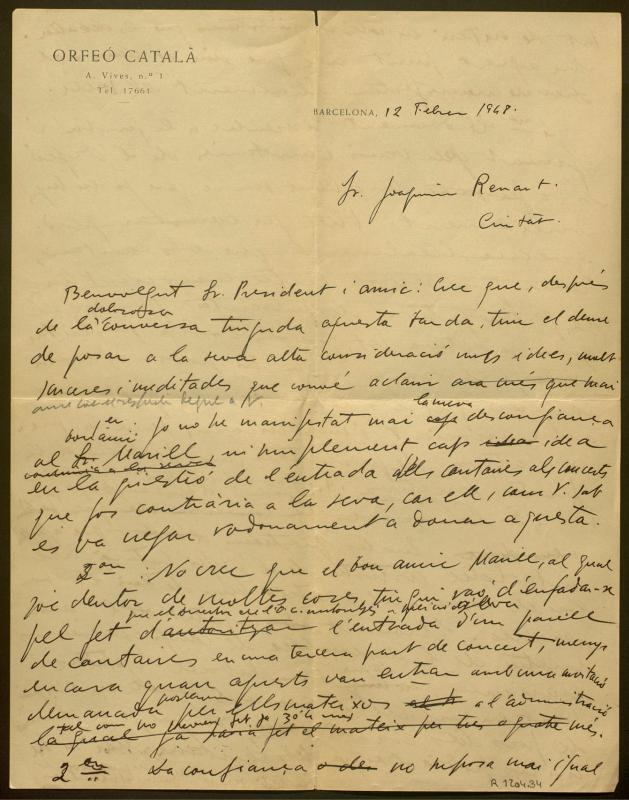 ORFEÓ CATALÀ
A. Vives, n.º 1
Tel. 17661
BARCELONA, 12 Febrer 1948.
Sr. Joaquim Renart.
Ciutat.
Benvolgut Sr. President i amic: Crec que, després
dolorosa
de la conversa tinguda aquesta tarda, tinc el deure
de posar a la seva alta consideració unes idees, molt
sinceres i meditades que convé aclarir ara més que mai
1er jo no he manifestat mai cap la meva desconfiança
bon amic
al Sr. Marill, ni simplement cap idea
en la qüestió de l'entrada dels cantaires als concerts
que fos contrària a la seva, car ell, com V. sab
es va negar rodonament a donar aquesta.
2on No crec que el bon amic Marill, al qual
soc deutor de moltes coses, tingui raó d'enfadar-se
pel fet d'autoritzar l'entrada d'un parell
de cantaires en una tercera part de concert, menys
encara quan aquests van entrar amb una invitació
demanada per ells mateixos a l'administració
la qual ja havia fet el mateix per tres o quatre més.
La confiança no suposa mai igual
R 1204.34